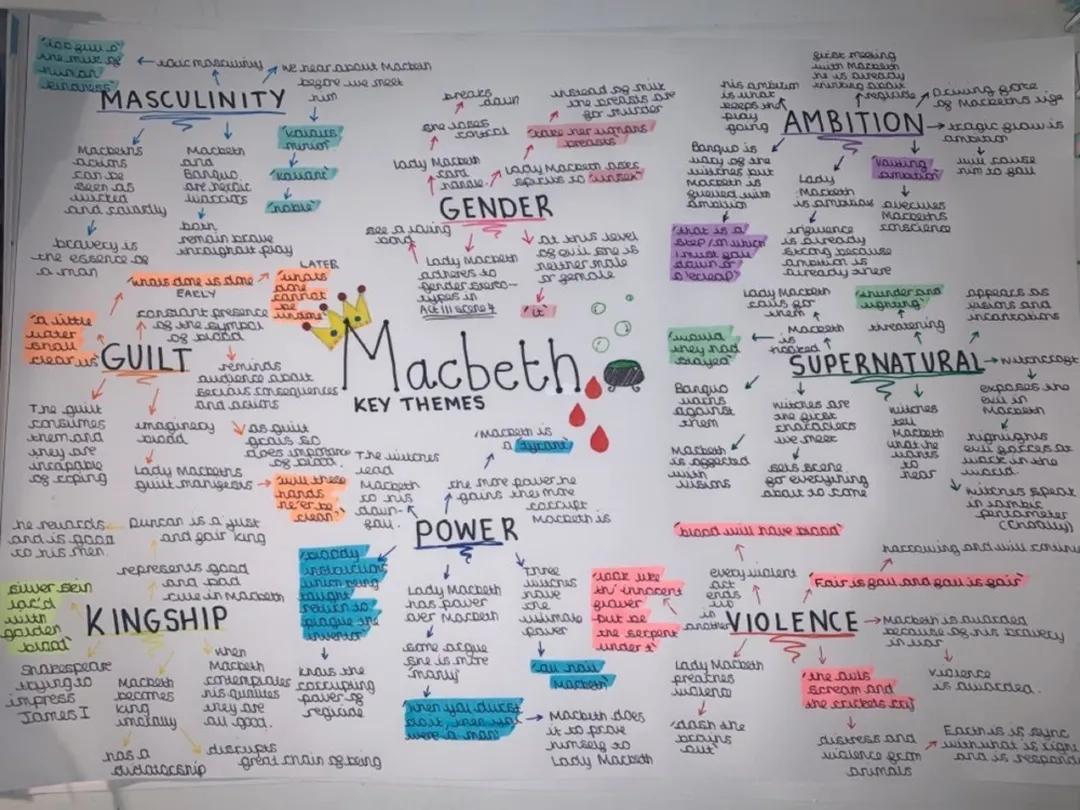 'too full o'
the milk of
human
kindness'
toxic masculinity
we hear about Macbeth
before we meet
him
MASCULINITY
'valour's
minion'
'valiant'
'noble'
Macbeths
actions
can be
seen as
wicked
and cowardly
bravery is
the essence of
a man
Macbeth
and
Banquo
are heroic
warriors
both
remain brave
throughout play
breaks
down
she loses
control
Lady Macbeth
cant
handle
instead of milk
the breasts are
for murder
'take her womans
breasts'
Lady Macbeth asks
spirits to 'unsex'
GENDER
see a loving
bond
Lady Macbeth
adheres to
gender stereo-
types in
Act III scene 4
at this level
of evil she is
neither male
or female
'it'
his ambition
is what
keeps the
play
going
first meeting
with Macbeth
he is already
thinking about
regicide
driving force
of Macbeths life
AMBITION
tragic flaw is
ambition
will cause
him to fall
'vaulting
ambition'
overrules
Macbeths
conscience
Banquo is
wary of the
witches but
Macbeth is
fuelled with
ambition
'that is a
step / on which
I must fall
down or
o'erleap'
Lady
Macbeth
is ambitious
influence
is already
strong because
ambition is
already there
'whats done is done'
EARLY
LATER
'whats
done
cannot
be
undone'
'a little
water
shall
clear us'
constant presence
of the symbol
of blood
GUILT
reminds
audience about
serious consequences
and actions
The guilt
consumes
them and
they are
incapable
of coping
imaginery
blood
Lady Macbeths
guilt manifests
as guilt
grows so
does importance
of blood
'will these
hands
ne'er be
clean?'
Macbeth
KEY THEMES
Lady Macbeth
calls for
them
'thunder and
lighting'
threatening
appears as
visions and
incantations
'would
they had
stayed'
Macbeth
is
hooked
SUPERNATURAL
witchcraft
exposes the
evil in
Macbeth
highlights
evil forces at
work in the
world
Banquo
warns
against
them
Macbeth
is affected
with
visions
witches are
the first
characters
we meet
sets scene
for everything
about to come
witches
tell
Macbeth
what he
wants
to
hear
witches speak
in iambic
(Chaotly)
The witches
lead
Macbeth
to his
down-
fall
Macbeth is
a 'tyrant'
the more power he
gains the more
corrupt
Macbeth is
POWER
'bloody
instructions
which being
taught
return to
plague the
inventor'
knows the
corrupting
power of
regicide
Lady Macbeth
has power
over Macbeth
some argue
she is more
'manly'
'when you durst
do it, then you
were a man'
Macbeth does
it to prove
himself to
Lady Macbeth
Three
witches
have
the
ultimate
power
'all hail
Macbeth'
he rewards
and is good
to his men.
Duncan is a just
and fair king
represents good
and bad
rule in Macbeth
'silver skin
lac'd
with
golden
blood'
KINGSHIP
Shakespeare
trying to
impress
James I
Macbeth
becomes
king
has a
dictatorship
disrupts
great chain of being
when
Macbeth
contemplates
his qualities
they are
all good.
'blood will have blood'
'look like
th' innocent
flower
but be
the serpent
under't'
every violent
act
ends
up
in
another
'Fair is foul and foul is fair'
harrowing and will continue
VIOLENCE
Macbeth is awarded
because of his bravery
in war
violence
is awarded.
Lady Macbeth
preaches
violence
'dash the
brains
out'
'the owls
scream and
the crickets cry'
distress and
violence from
animals
Earth is in sync
with what is right
and is